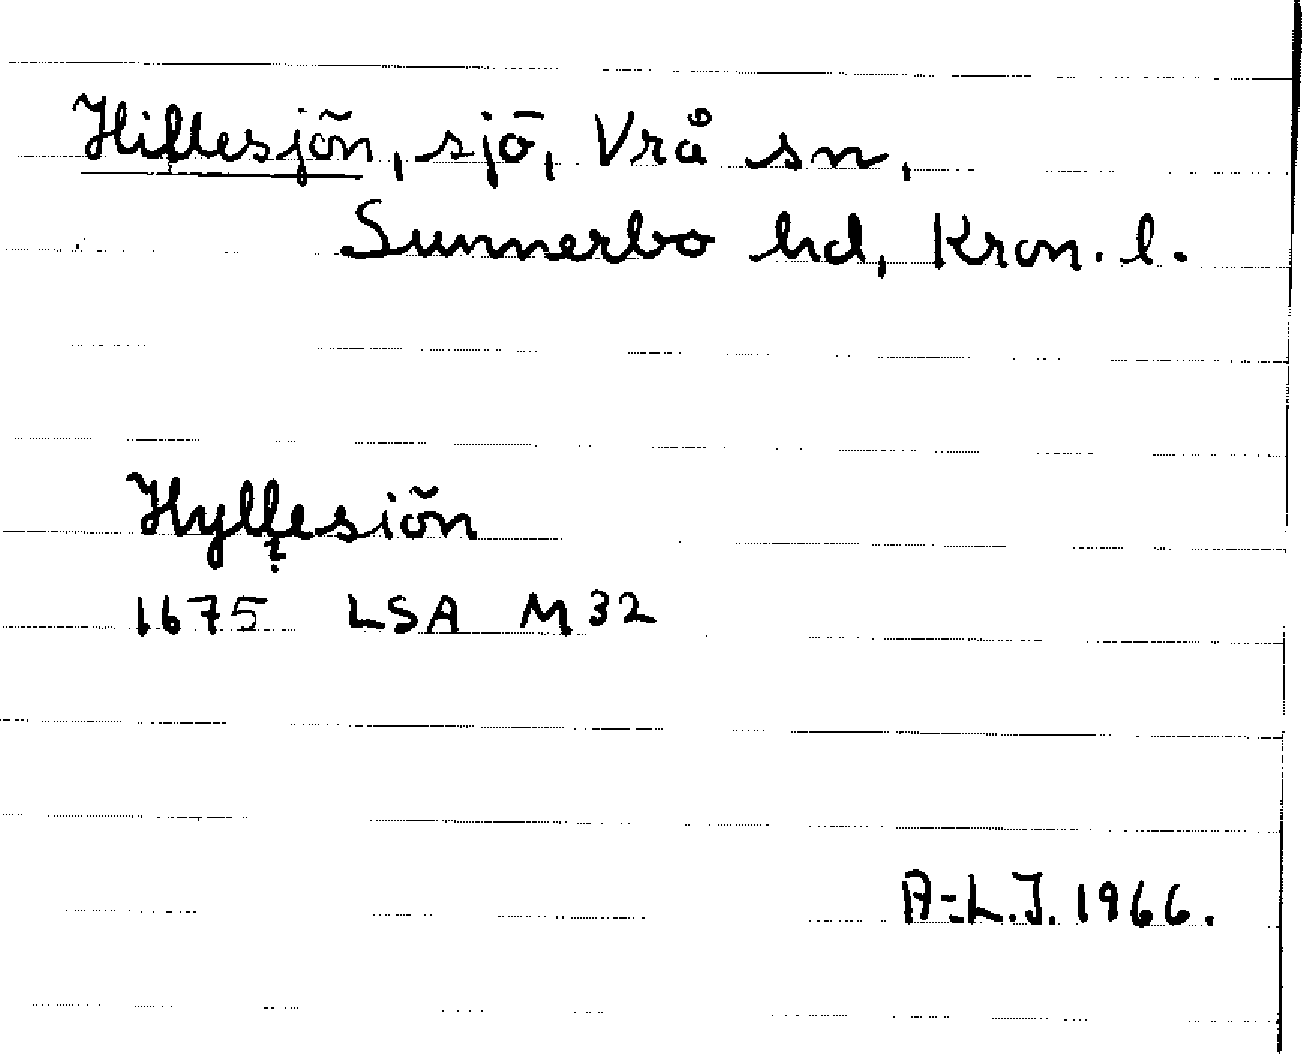 Hiflesjön, sjö, Vrå sn,
Sunnerbo hd, Kron. l.
Hylfesiön
?
1675 LSA M 32
A-L.J. 1966.